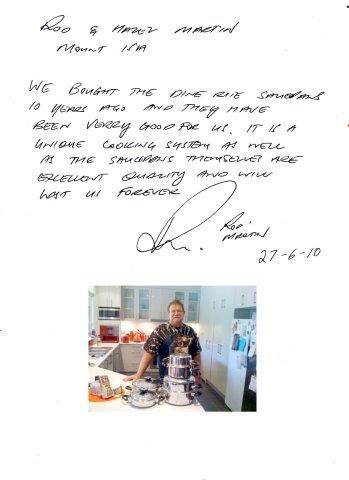 ROD & HAZEL MARTIN
MOUNT ISA
WE BOUGHT THE DINE RITE SAUCEPANS
10 YEARS AGO AND THEY HAVE
BEEN VERRY GOOD FOR US. IT IS A
UNIQUE COOKING SYSTEM AS WELL
AS THE SAUCEPANS THEMSELVES ARE
EXELLENT QUALITY AND WILL
LAST US FOREVER
ROD
MARTIN
27-6-10